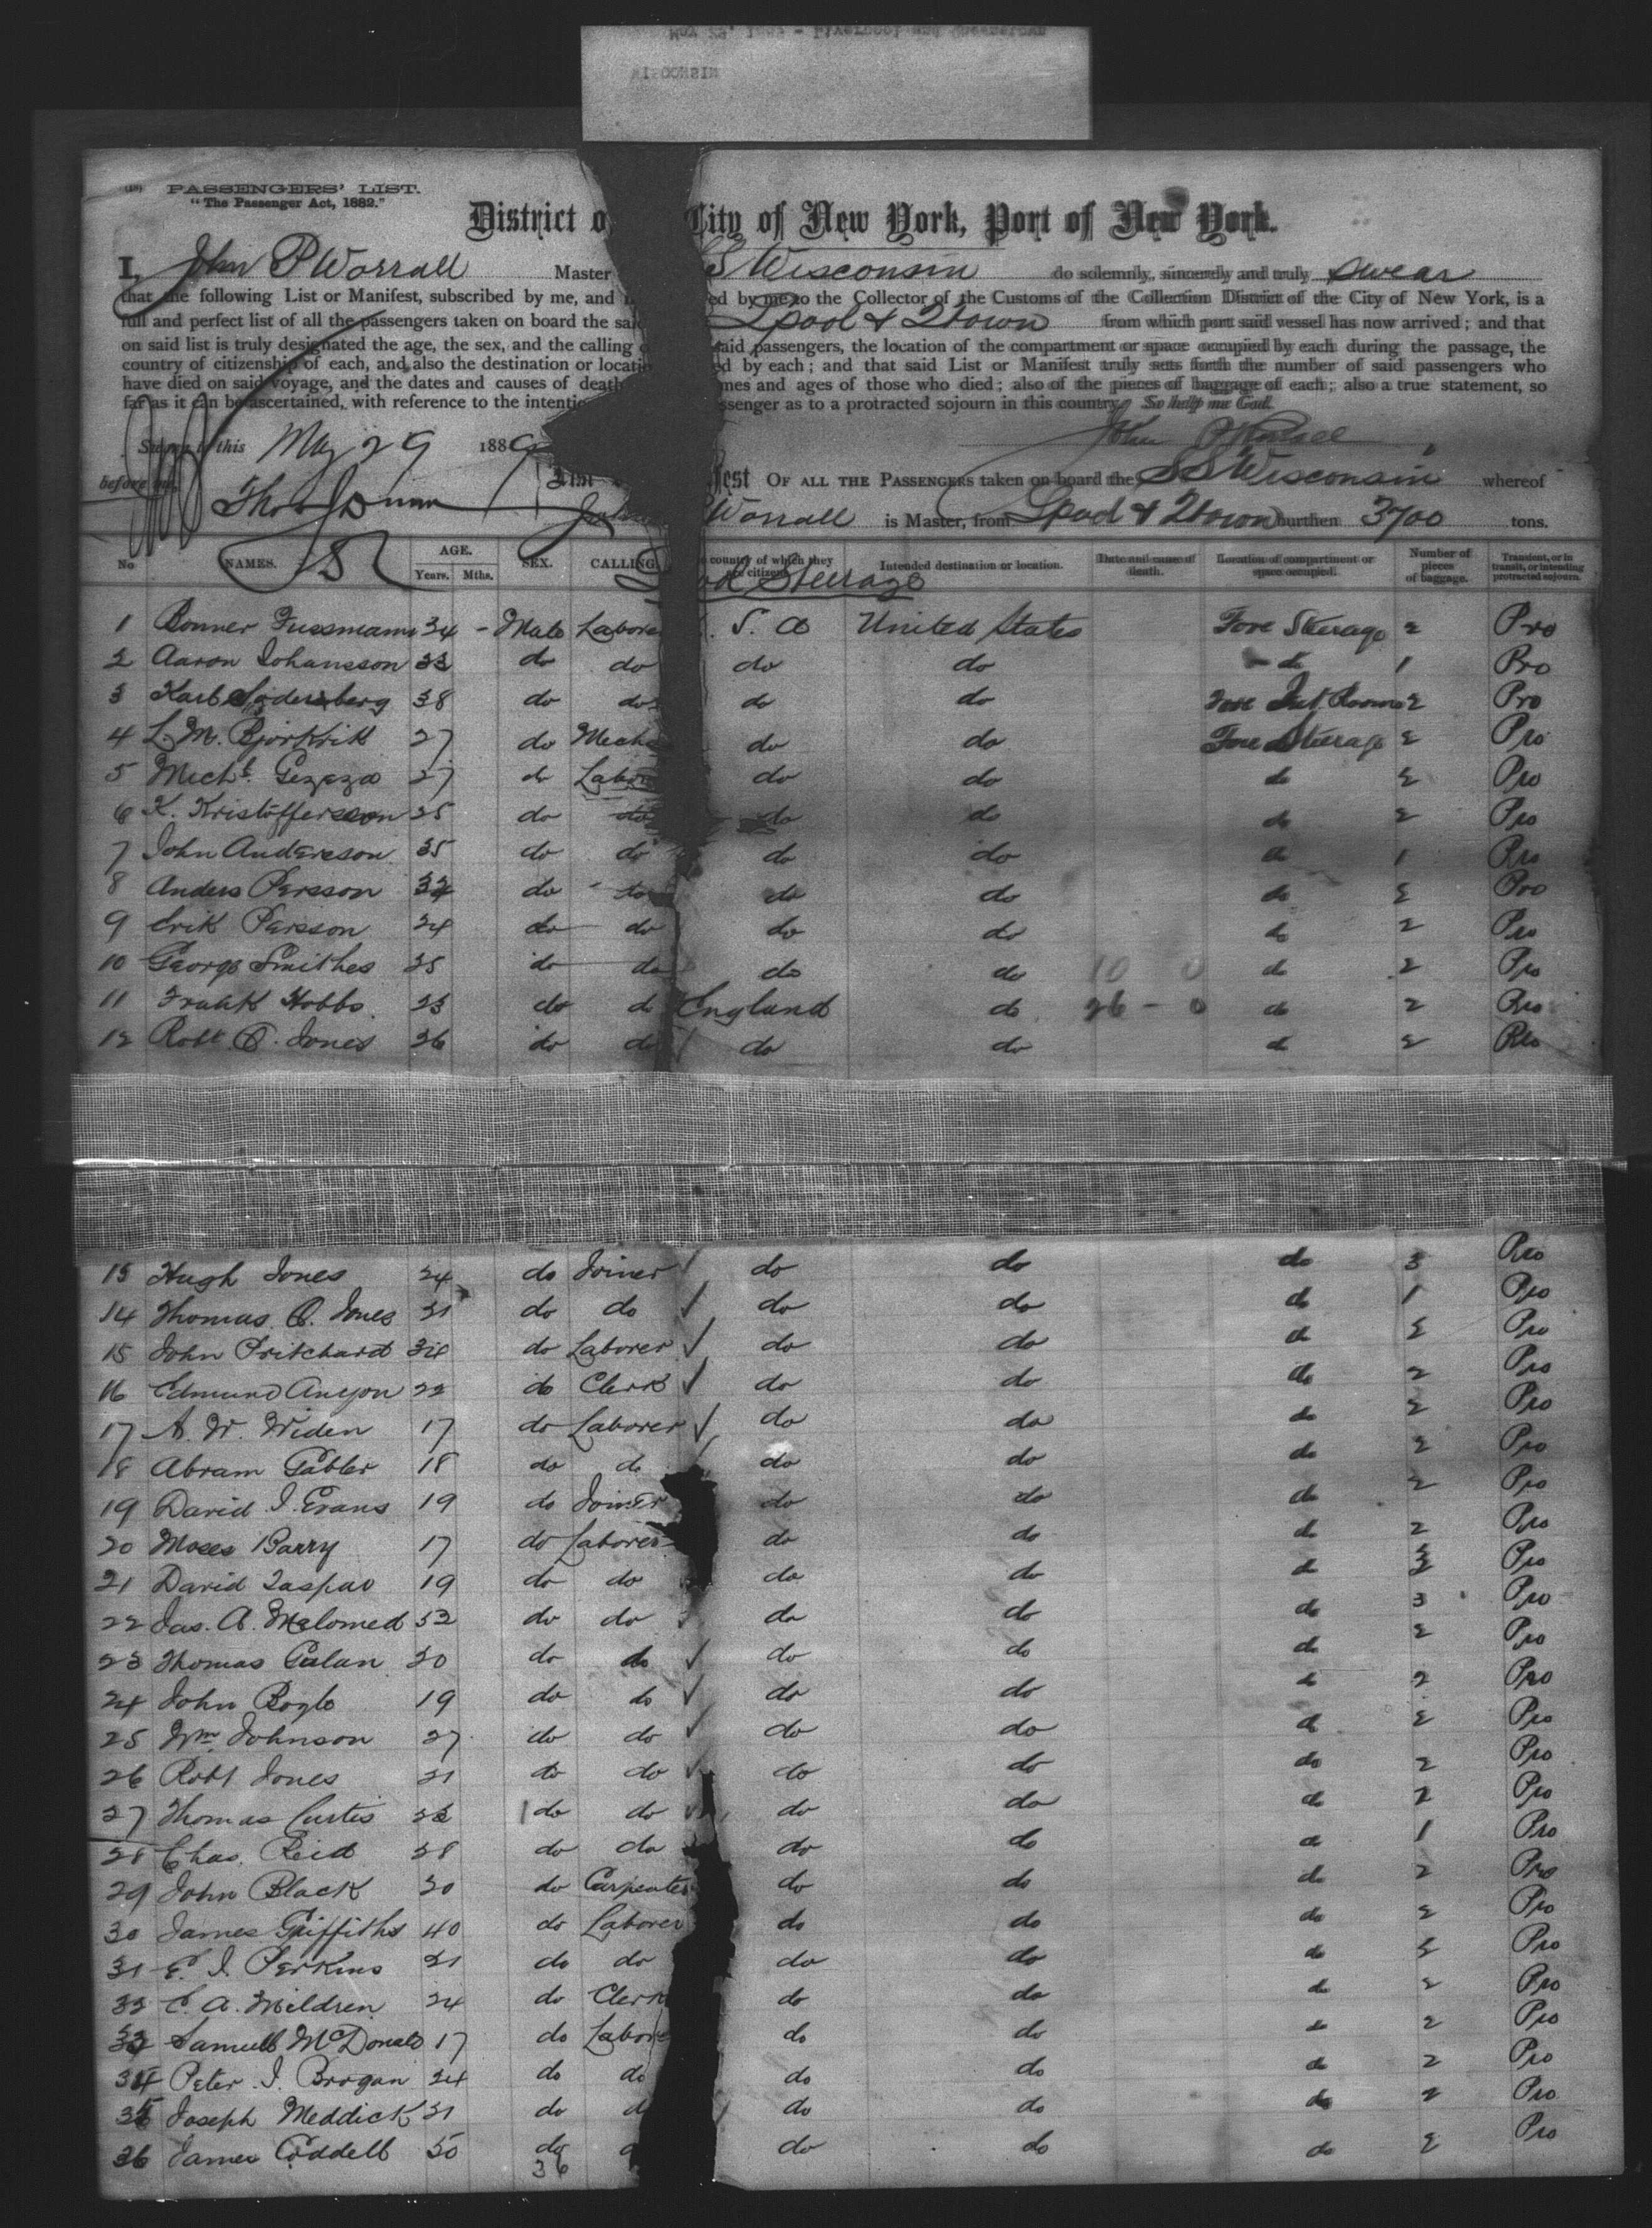 WISCONSIN
PASSENGERS' LIST.
"The Passenger Act, 1882."
District o City of New York, Port of New York.
I, John P Worrall Master S Wisconsin do solemnly, sincerely and truly swear
that the following List or Manifest, subscribed by me, and ed by me to the Collector of the Customs of the Collection District of the City of New York, is a
full and perfect list of all the passengers taken on board the said L'pool & Qtown from which port said vessel has now arrived; and that
on said list is truly designated the age, the sex, and the calling o said passengers, the location of the compartment or space occupied by each during the passage, the
country of citizenship of each, and also the destination or locatio d by each; and that said List or Manifest truly sets forth the number of said passengers who
have died on said voyage, and the dates and causes of death mes and ages of those who died; also of the pieces of baggage of each; also a true statement, so
far as it can be ascertained, with reference to the intentio ssenger as to a protracted sojourn in this country. So help me God.
John P Worrall
Sworn to this May 29 1889
before me
List fest OF ALL THE PASSENGERS taken on board the SS Wisconsin whereof
Worrall is Master, from L'pool & Qtown burthen 3700 tons.
No NAMES. AGE. Years. Mths. SEX. CALLING country of which they are citizens. Intended destination or location. Date and cause of death. Location of compartment or space occupied. Number of pieces of baggage. Transient, or in transit, or intending protracted sojourn.
Steerage
1 Bonner Fussmann 34 - Male Labore S. A United States Fore Steerage 2 Pro
2 Aaron Johansson 33 do do do do do 1 Pro
3 Karl Soderberg 38 do do do do Fore Int. Room 2 Pro
4 L. M. Bjorkrik 27 do Mecha do do Fore Steerage 2 Pro
5 Michl. Gezaza 27 do Labore do do do 2 Pro
6 K. Kristofferson 25 do do do do do 2 Pro
7 John Anderson 35 do do do do do 1 Pro
8 Anders Persson do do do do do 2 Pro
9 Erik Persson 24 do do do do do 2 Pro
10 George Smithes 25 do do do do 10 0 do 2 Pro
11 Frank Hobbs. 23 do do England do 26 - 0 do 2 Pro
12 Robt. O. Jones 26 do do do do do 2 Pro
13 Hugh Jones 24 do Joiner do do do 3 Pro
14 Thomas O. Jones 21 do do do do do 1 Pro
15 John Pritchard 34 do Laborer do do do 2 Pro
16 Edmund Anyon 22 do Clerk do do do 2 Pro
17 A. W. Widen 17 do Laborer do do do 2 Pro
18 Abram Gabler 18 do do do do do 2 Pro
19 David J. Evans 19 do Joiner do do do 2 Pro
20 Moses Barry 17 do Laborer do do do 2 Pro
21 David Taspao 19 do do do do do Pro
22 Jas. A. Malomed 52 do do do do do 3 Pro
23 Thomas Galan 20 do do do do do 2 Pro
24 John Boyle 19 do do do do do 2 Pro
25 Wm. Johnson 27 do do do do do 2 Pro
26 Robt Jones 21 do do do do do 2 Pro
27 Thomas Curtis do do do do do 2 Pro
28 Chas. Reid 28 do do do do do 1 Pro
29 John Black 20 do Carpenter do do do 2 Pro
30 James Griffiths 40 do Laborer do do do 2 Pro
31 E. J. Perkins 21 do do do do do 2 Pro
32 C. A. Mildren 24 do Clerk do do do 2 Pro
33 Samuel McDonald 17 do Labore do do do 2 Pro
34 Peter J. Brogan 24 do do do do do 2 Pro
35 Joseph Meddick 21 do d do do do 2 Pro
36 James Coddell 50 do d do do do 2 Pro
36